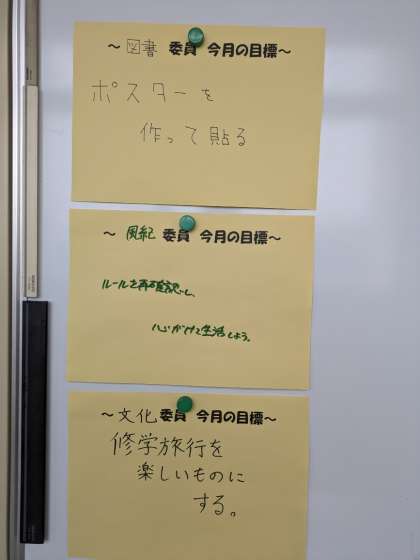 ～図書 委員 今月の目標～
ポスターを
作って貼る
～ 風紀 委員 今月の目標～
ルールを再確認し、
心がけて生活しよう。
～文化 委員 今月の目標～
修学旅行を
楽しいものに
する。